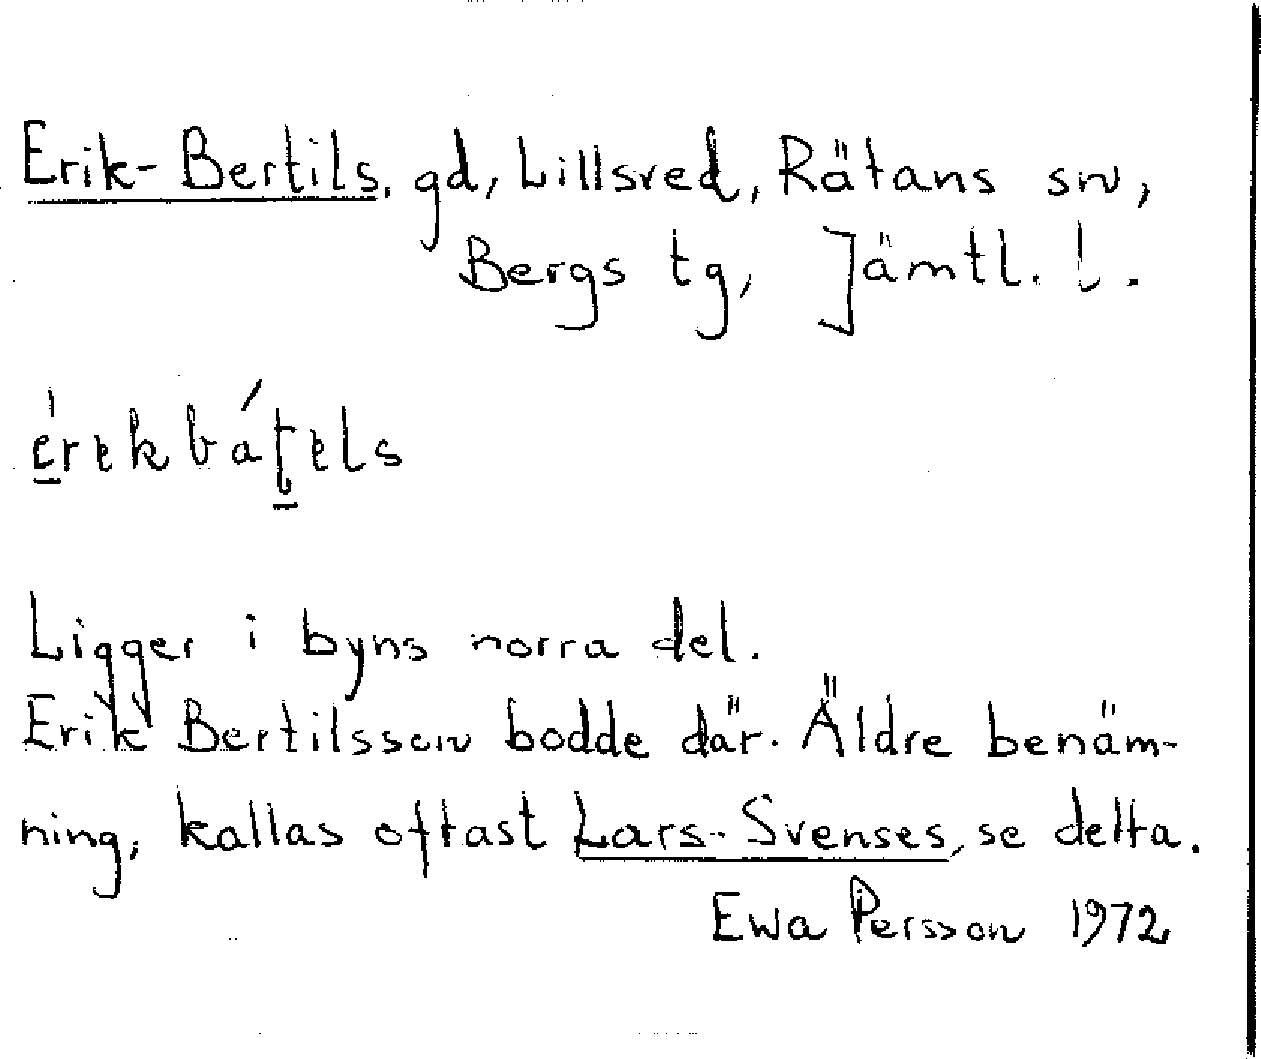 Erik-Bertils, gd, Lillsved, Rätans sn,
Bergs tg, Jämtl. l.
érekbáʈels
Ligger i byns norra del.
Erik Bertilsson bodde där. Äldre benäm-
ning, kallas oftast Lars-Svenses, se detta.
Ewa Persson 1972